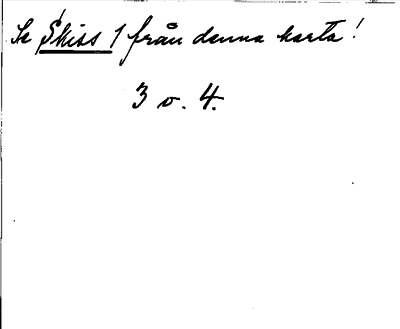 Se Skiss 1 från denna karta!
3 o. 4.